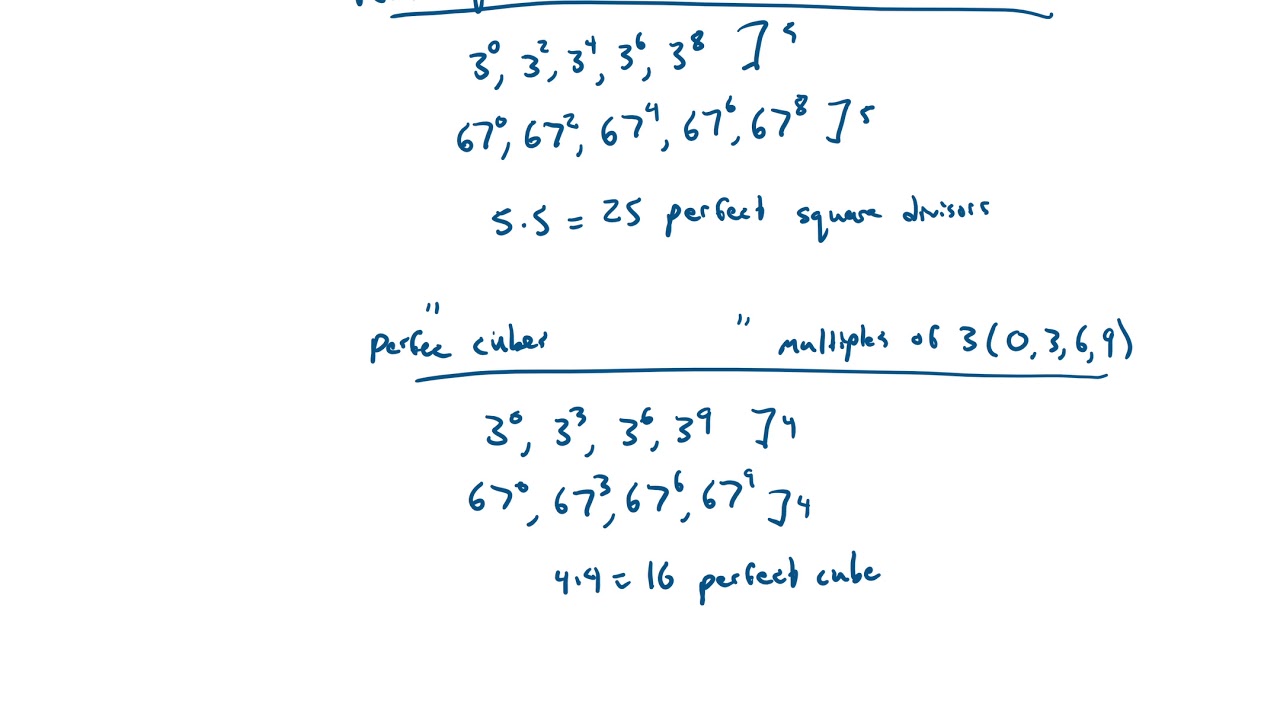 3⁰, 3², 3⁴, 3⁶, 3⁸ ] 5
67⁰, 67², 67⁴, 67⁶, 67⁸ ] 5
5·5 = 25 perfect square divisors
" "
perfec cubes multiples of 3 (0, 3, 6, 9)
3⁰, 3³, 3⁶, 3⁹ ] 4
67⁰, 67³, 67⁶, 67⁹ ] 4
4·4 = 16 perfect cube